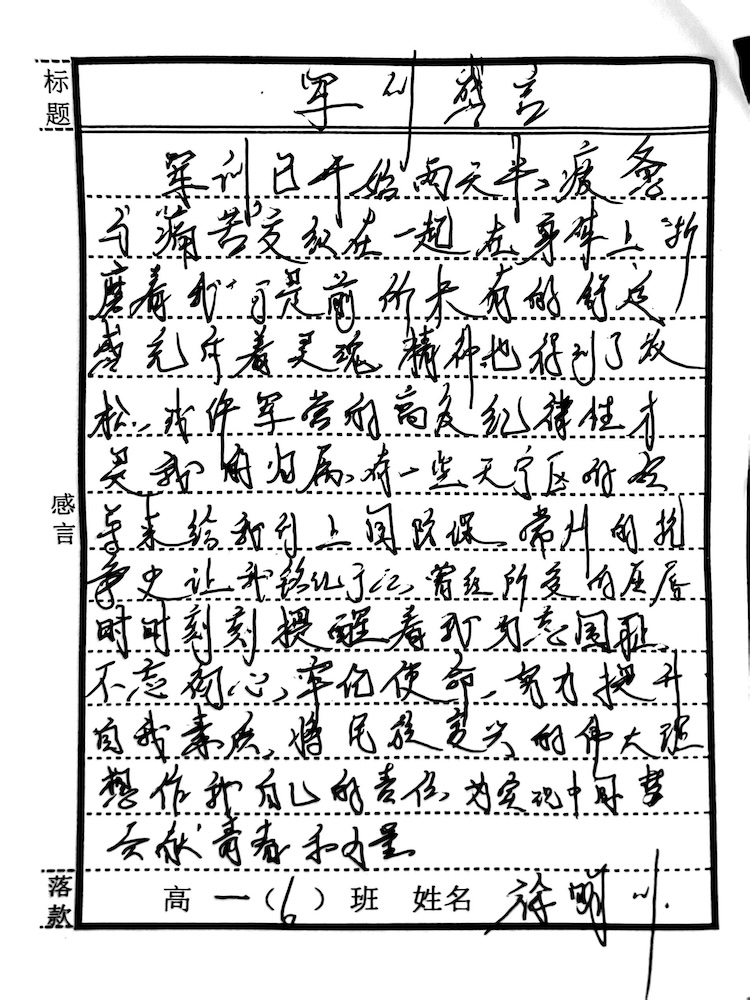 标题
军训感言
军训已开始两天半，疲惫
与痛苦交织在一起，在身体上折
磨着我，可是前所未有的舒适
感充斥着灵魂，精神也得到了放
松，或许军营的高度纪律性才
是我的归属，有一些天宁区的
来给我们上国防课，常州的抗
争史让我铭记于心，曾经所受的屈辱
时时刻刻提醒着我勿忘国耻，
不忘初心，牢记使命，努力提升
自我素质，将民族复兴的伟大理
想作我自己的责任，为实现中国梦
贡献青春和力量
感言
落款
高一（6）班 姓名 徐明